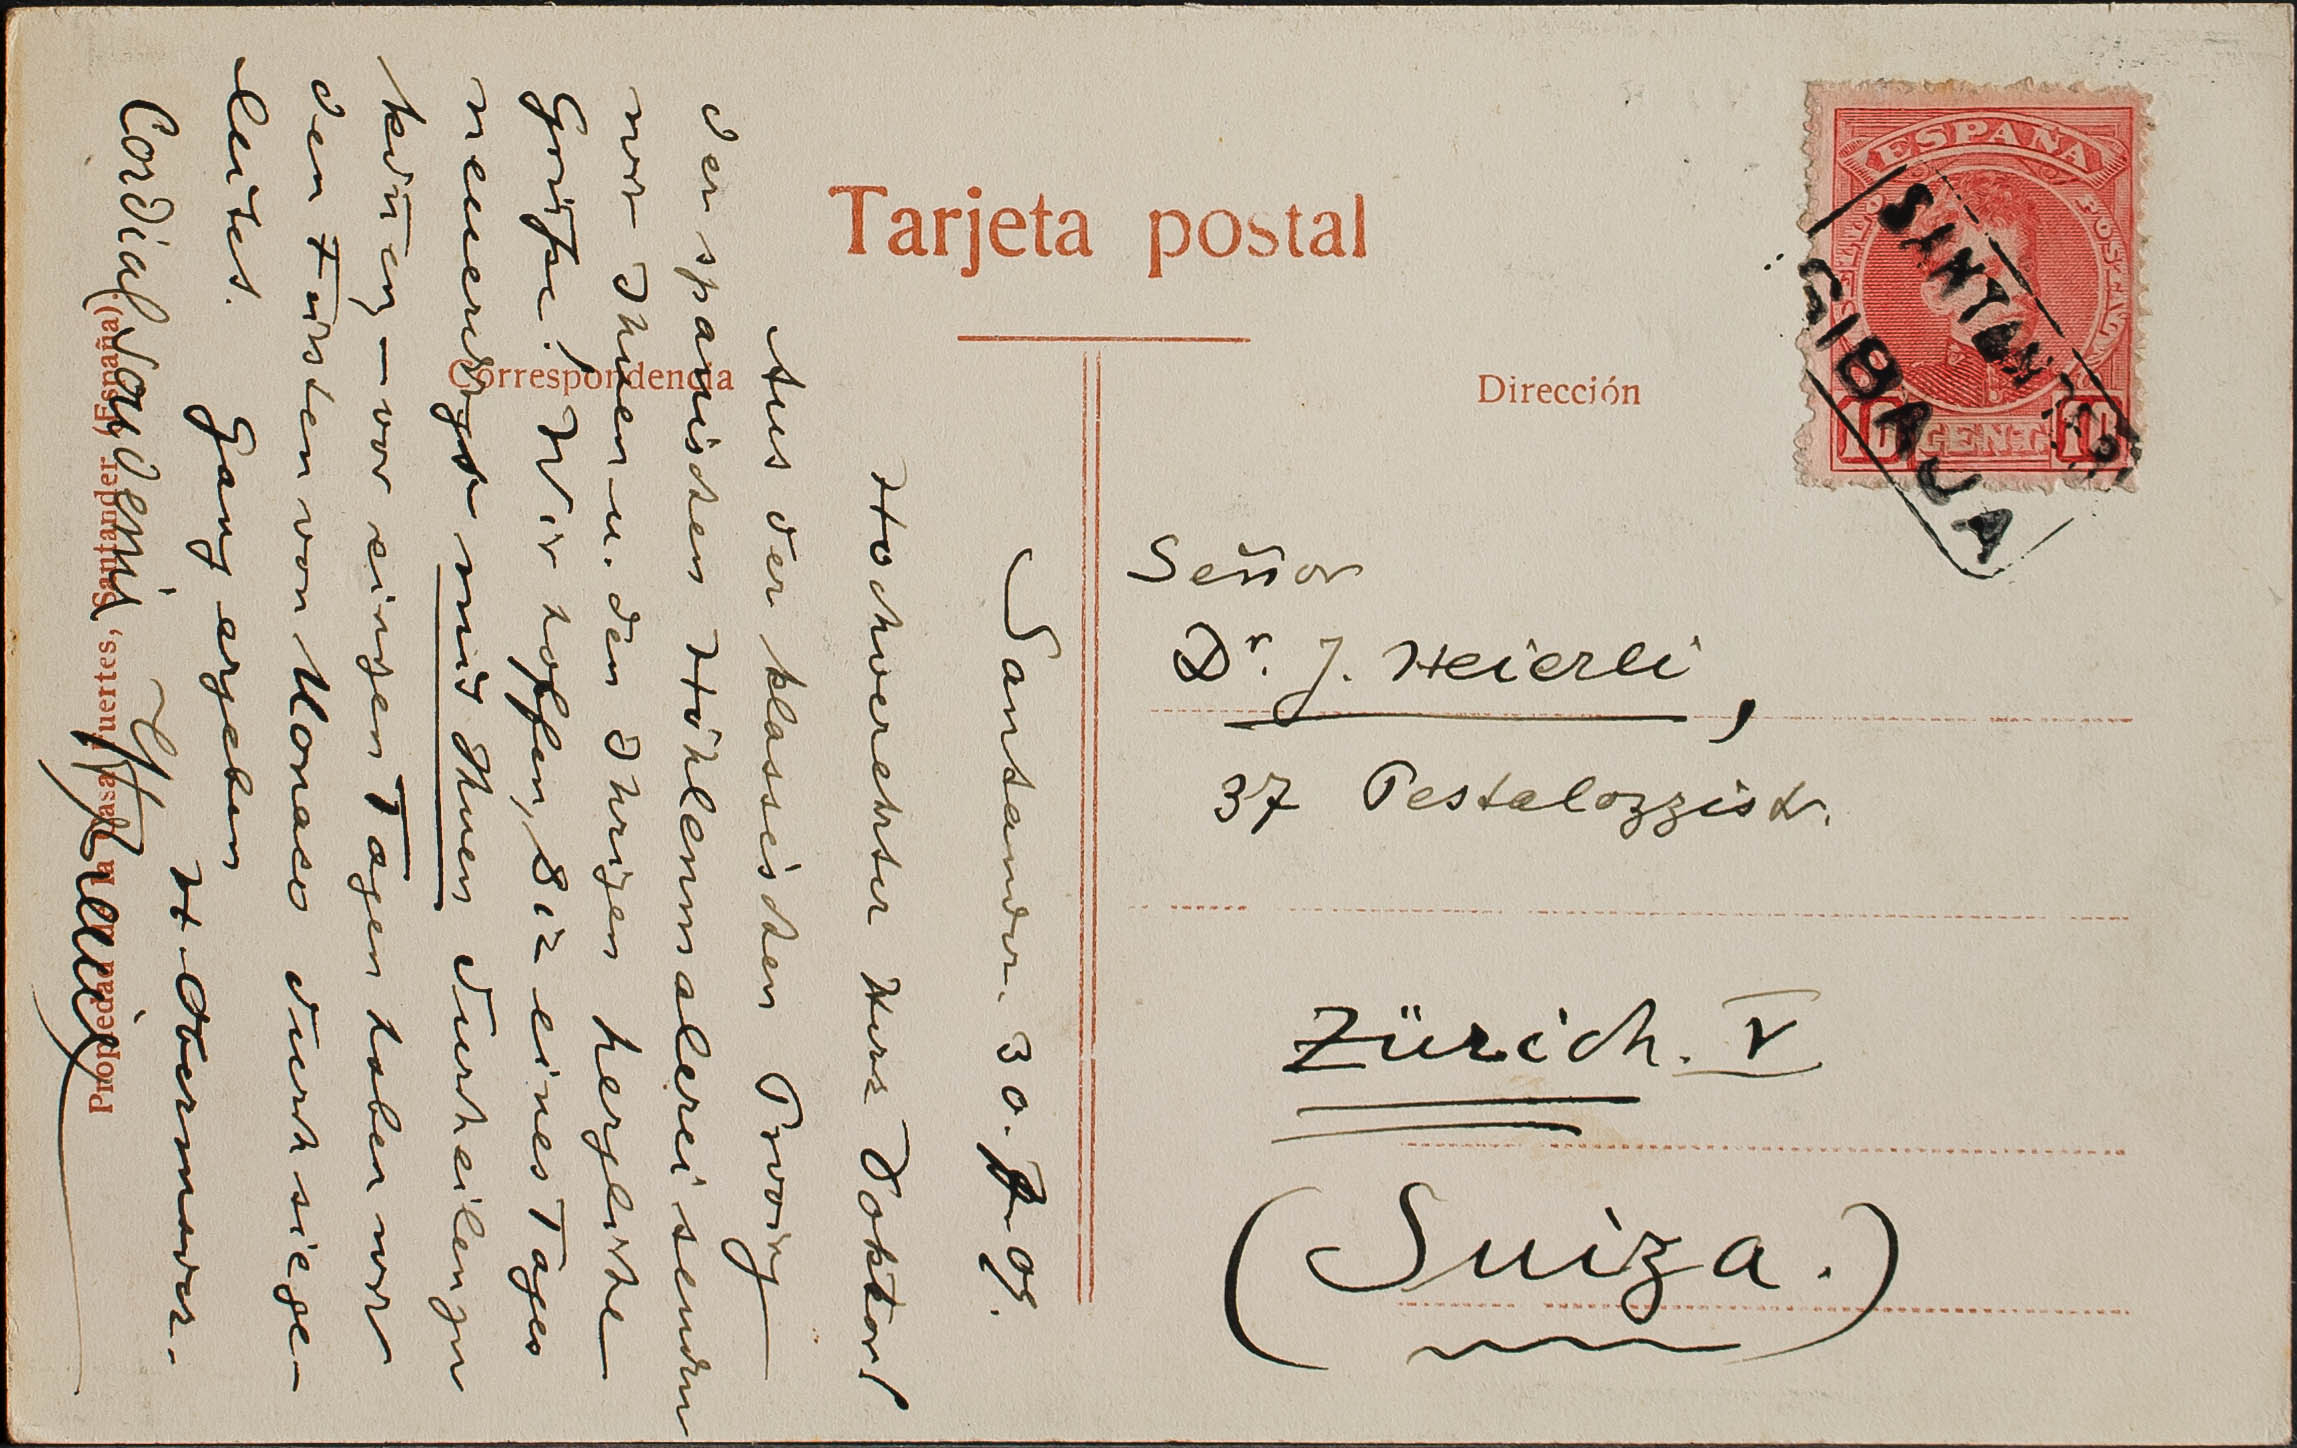 Tarjeta postal
Correspondencia
Dirección
ESPAÑA
10 CENT. 10
SANTANDER
GIBAJA
Señor
Dr. J. Heierli,
37 Pestalozzistr.
Zürich. V
(Suiza.)
Santander. 30. 09.
Hochverehrter Herr Doktor!
Aus der klassischen Provinz
der spanischen Höhlenmalerei senden
wir Ihnen u. den Ihrigen herzliche
Grüsse! Wir hoffen, Sie eines Tages
neuerdings mit Ihnen durcheilen zu
können – vor einigen Tagen haben wir
den Fürsten von Monaco durch sie ge-
leitet. Ganz ergeben
H. Obermaier.
Cordial souvenir
H. Breuil
Propiedad de la Casa Fuertes, Santander (España)